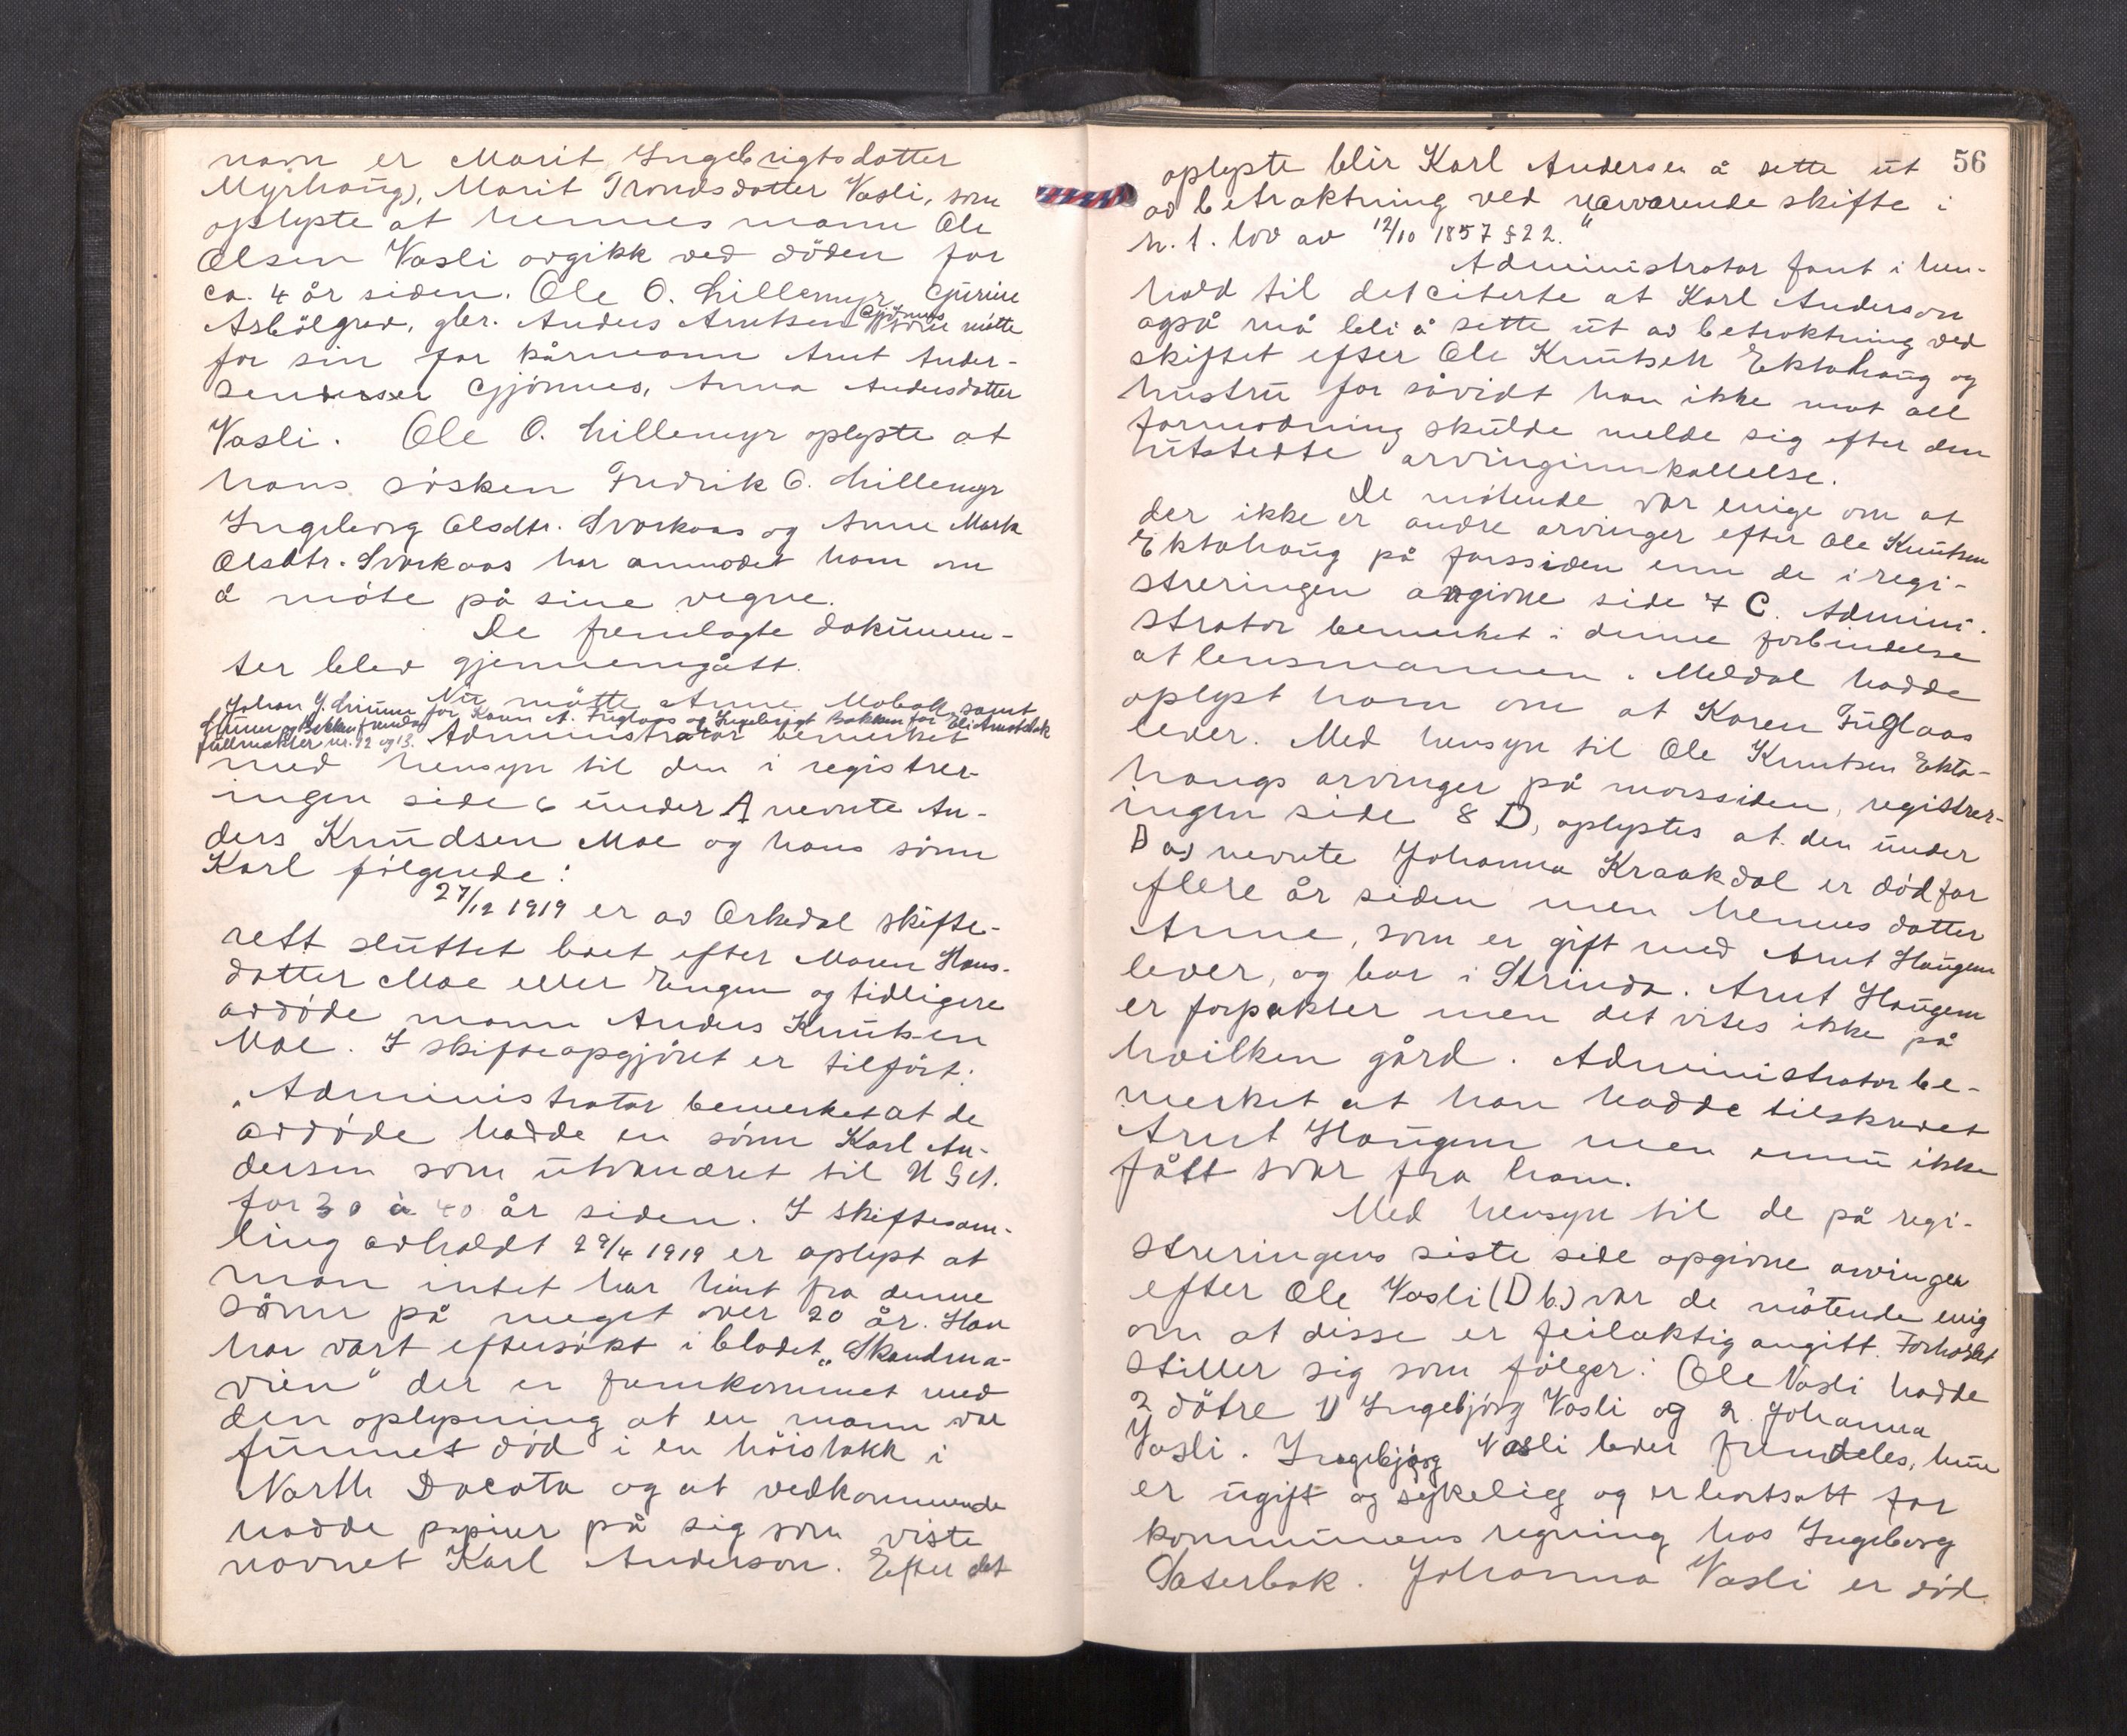 navn er Marit Ingebrigtsdatter
Myrhaug), Marit Trondsdatter Vasli, som
oplyste at hennes mann Ole
Olsen Vasli avgikk ved döden for
ca. 4 år siden. Ole O. Lillemyr, Gurine
Asbölgrav, gbr. Anders Arntsen Gjönnes møtte
for sin far kårmann Arnt Ander-
sen Gjönnes, Anna Andersdatter
Vasli. Ole O. Lillemyr oplyste at
hans søsken Fredrik O. Lillemyr
Ingeborg Olsdtr. Svorkaas og Anne Marta
Olsdtr. Svorkaas har anmodet ham om
å møte på sine vegne.
De fremlagte dokumen-
ter blev gjennemgått.
Nu møtte Anne Mobakk samt
Johan J. for Karen A. Fuglaas og Ingebrigt Bakken for Eli
og Bakken fremla
fullmakter nr. 12 og 13. Administrator bemerket
med hensyn til den i registrer-
ingen side 6 under A nevnte An-
ders Knudsen Moe og hans sønn
Karl følgende:
27/12 1919 er av Orkedal skifte-
rett sluttet boet efter Maren Hans-
datter Moe eller Engen og tidligere
avdøde mann Anders Knutsen
Moe. I skifteopgjøret er tilført:
"Administrator bemerket at de
avdøde hadde en sønn Karl An-
dersen som utvandret til USA.
for 30 à 40 år siden. I skiftesam-
ling avholdt 29/4 1919 er oplyst at
man intet har hørt fra denne
sønn på meget over 20 år. Han
har vært eftersøkt i bladet "Skandina-
vien" der er fremkommet med
den oplysning at en mann var
funnet död i en höistakk i
North Dacota og at vedkommende
hadde papirer på sig som viste
navnet Karl Anderson. Efter det
56
oplyste blir Karl Andersen å sette ut
av betraktning ved nærværende skifte i
h. t. lov av 12/10 1857 § 22."
Administrator fant i hen-
hold til det citerte at Karl Anderson
også må bli å sette ut av betraktning ved
skiftet efter Ole Knutsen Ektahaug og
hustru for såvidt han ikke mot all
formodning skulde melde sig efter den
utstedte arvinginnkallelse.
De møtende var enige om at
der ikke er andre arvinger efter Ole Knutsen
Ektahaug på farssiden enn de i regi-
streringen angivne side 7 C. Admini-
strator bemerket i denne forbindelse
at lensmannen i Meldal hadde
oplyst ham om at Karen Fuglaas
lever. Med hensyn til Ole Knutsen Ekta-
haugs arvinger på morssiden, registrer-
ingen side 8 D, oplystes at den under
D a) nevnte Johanna Kraakdal er död for
flere år siden men hennes datter
Anne, som er gift med Arnt Haugen
lever, og bor i Strinda. Arnt Haugen
er forpakter men det vites ikke på
hvilken gård. Administrator be-
merket at han hadde tilskrevet
Arnt Haugen men ennu ikke
fått svar fra ham.
Med hensyn til de på regi-
streringens siste side opgivne arvinger
efter Ole Vasli (D b.) var de møtende enig
om at disse er feilaktig angitt. Forholdet
stiller sig som følger: Ole Vasli hadde
2 døtre 1) Ingebjørg Vasli og 2. Johanna
Vasli. Ingebjørg Vasli lever fremdeles, hun
er ugift og sykelig og er bortsatt for
kommunens regning hos Ingeborg
Sæterbak. Johanna Vasli er död.